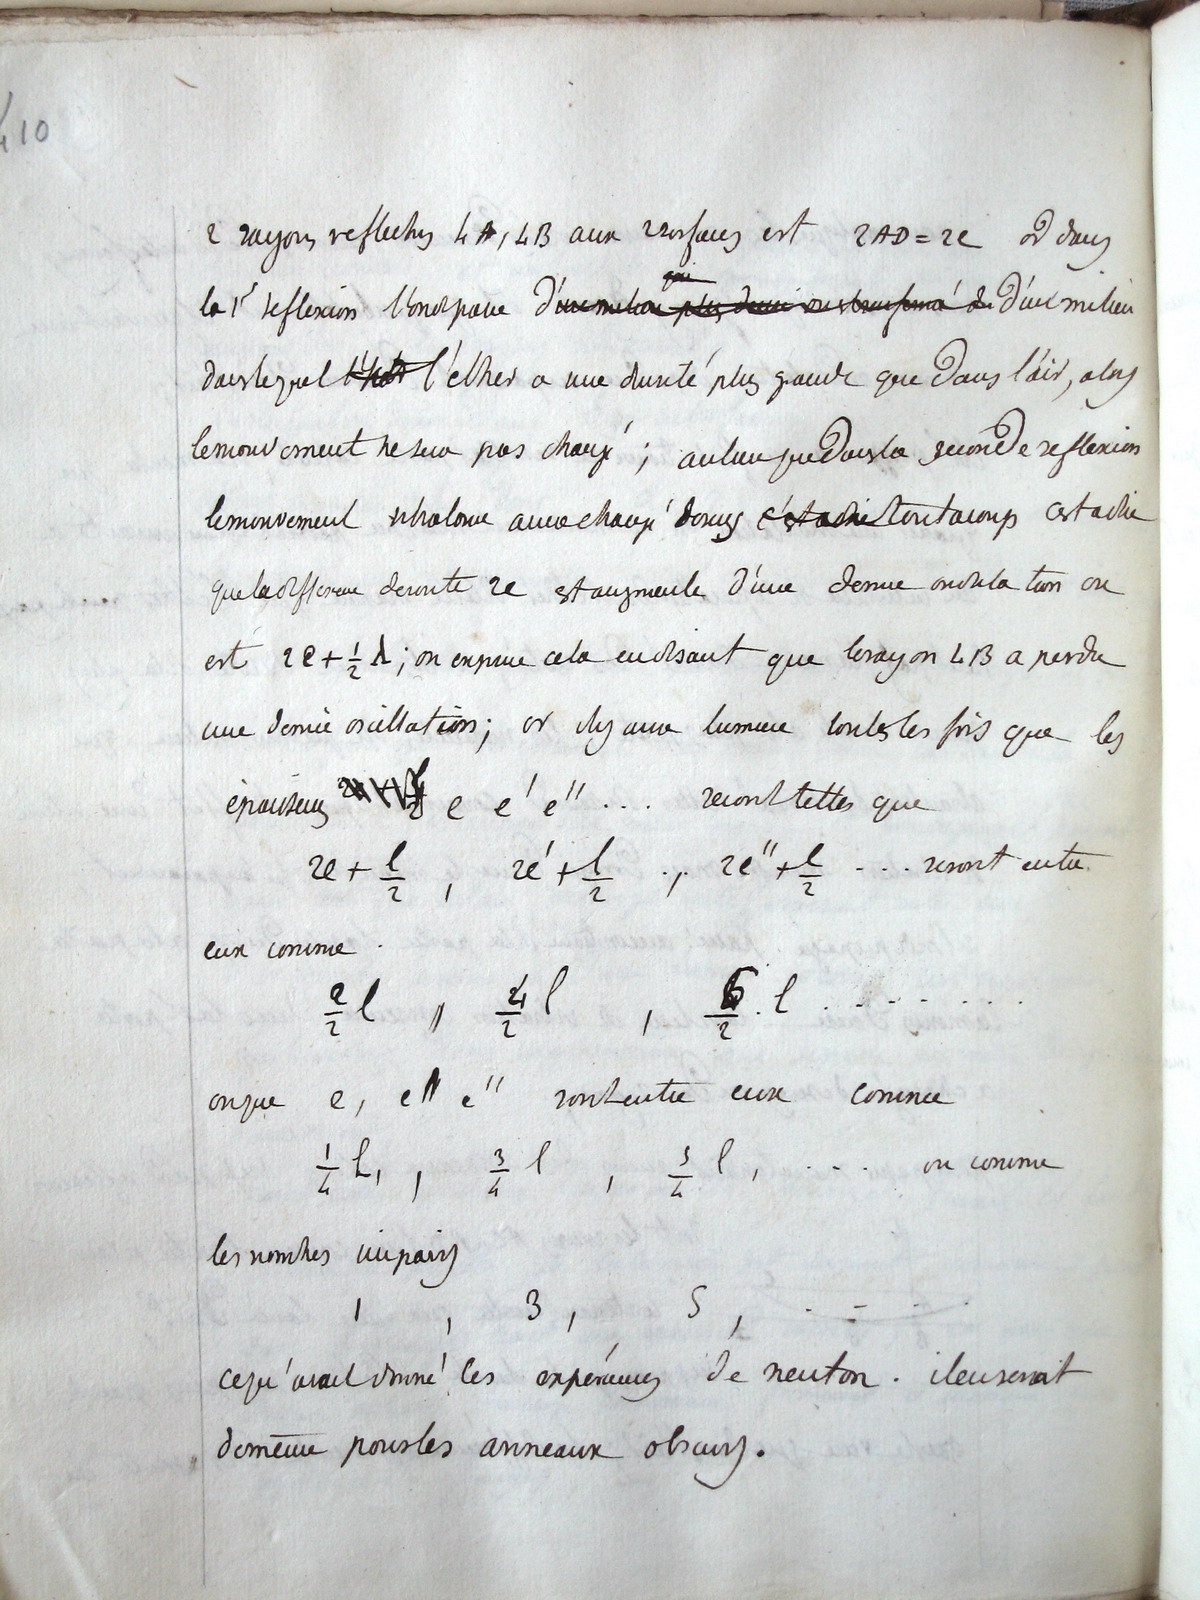 410
2 rayons reflechis LA, LB aux surfaces est 2AD = 2e or dans
la 1re reflexion l'onde passe d'une milieu plus dense d'un milieu
dans lequel l'éther a une densité plus grande que dans l'air, alors
le mouvement ne sera pas changé ; au lieu que dans la seconde reflexion
le mouvement vibratoire aura changé de sens c'est a dire tout a coup c'est a dire
que la difference de route 2e est augmentée d'une demie ondulation ou
est 2e + 1/2 λ ; on exprime cela en disant que le rayon LB a perdu
une demie oscillation ; or il y aura lumiere toutes les fois que les
épaisseurs e e' e'' ... seront telles que
2e + l/2 , 2e' + l/2 , 2e'' + l/2 ... seront entre
eux comme
2/2 l , 4/2 l , 6/2 l .......
ou que e, e' e'' sont entre eux comme
1/4 l, , 3/4 l , 5/4 l, .... ou comme
les nombres impairs
1 , 3 , 5 , ....
ce qu'avait donné les expériences de neuton . il en serait
de même pour les anneaux obscurs .